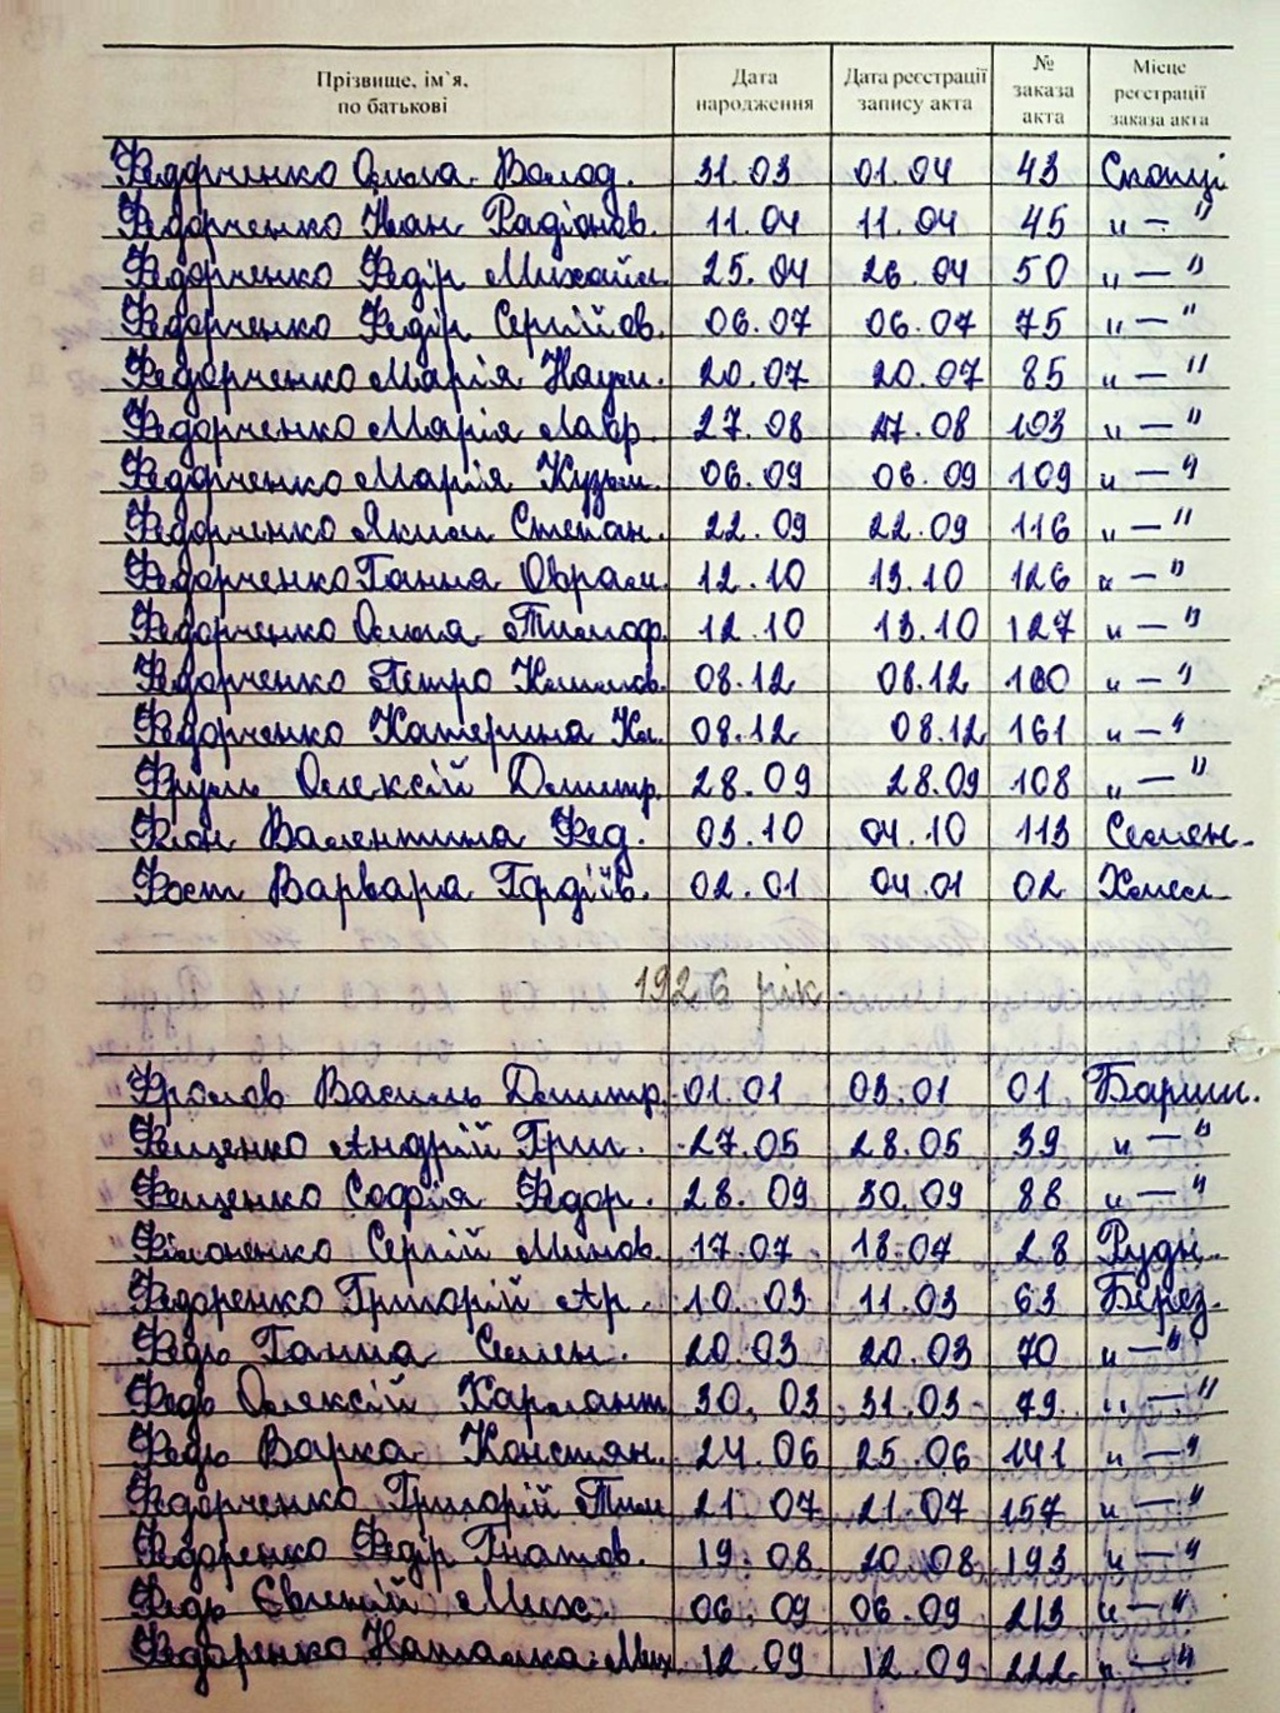 Прізвище, ім`я, по батькові Дата народження Дата реєстрації запису акта № заказа акта Місце реєстрації заказа акта
Федорченко Ольга Волод. 31.03 01.04 43 Скопці
Федорченко Іван Радіонов. 11.04 11.04 45 " — "
Федорченко Федір Михайл. 25.04 26.04 50 " — "
Федорченко Федір Сергійов. 06.07 06.07 75 " — "
Федорченко Марія Наум. 20.07 20.07 85 " — "
Федорченко Марія Лавр. 27.08 27.08 103 " — "
Федорченко Марія Кузьм. 06.09 06.09 109 " — "
Федорченко Яким Степан. 22.09 22.09 116 " — "
Федорченко Ганна Оврам. 12.10 13.10 126 " — "
Федорченко Ольга Тимоф. 12.10 13.10 127 " — "
Федорченко Петро Климов. 08.12 08.12 160 " — "
Федорченко Катерина Кл. 08.12 08.12 161 " — "
Фрузь Олексій Дмитр. 28.09 28.09 108 " — "
Фльон Валентина Фед. 03.10 04.10 113 Семен.
Фост Варвара Гордіїв. 02.01 04.01 02 Хмел.
1926 рік
Фролов Василь Дмитр. 01.01 03.01 01 Бариш.
Фещенко Андрій Григ. 27.05 28.05 39 " — "
Фещенко Софія Федор. 28.09 30.09 88 " — "
Філоненко Сергій Минов. 17.07 18.07 28 Рудн.
Федоренко Григорій Ар. 10.03 11.03 63 Берез.
Федь Ганна Семен. 20.03 20.03 70 " — "
Федь Олексій Харлант. 30.03 31.03 79 " — "
Федь Варка Констян. 24.06 25.06 141 " — "
Федорченко Григорій Тим 21.07 21.07 157 " — "
Федоренко Федір Гнатов. 19.08 20.08 193 " — "
Федь Євгеній Мих. 06.09 06.09 213 " — "
Федоренко Наталка Мих. 12.09 12.09 222 " — "